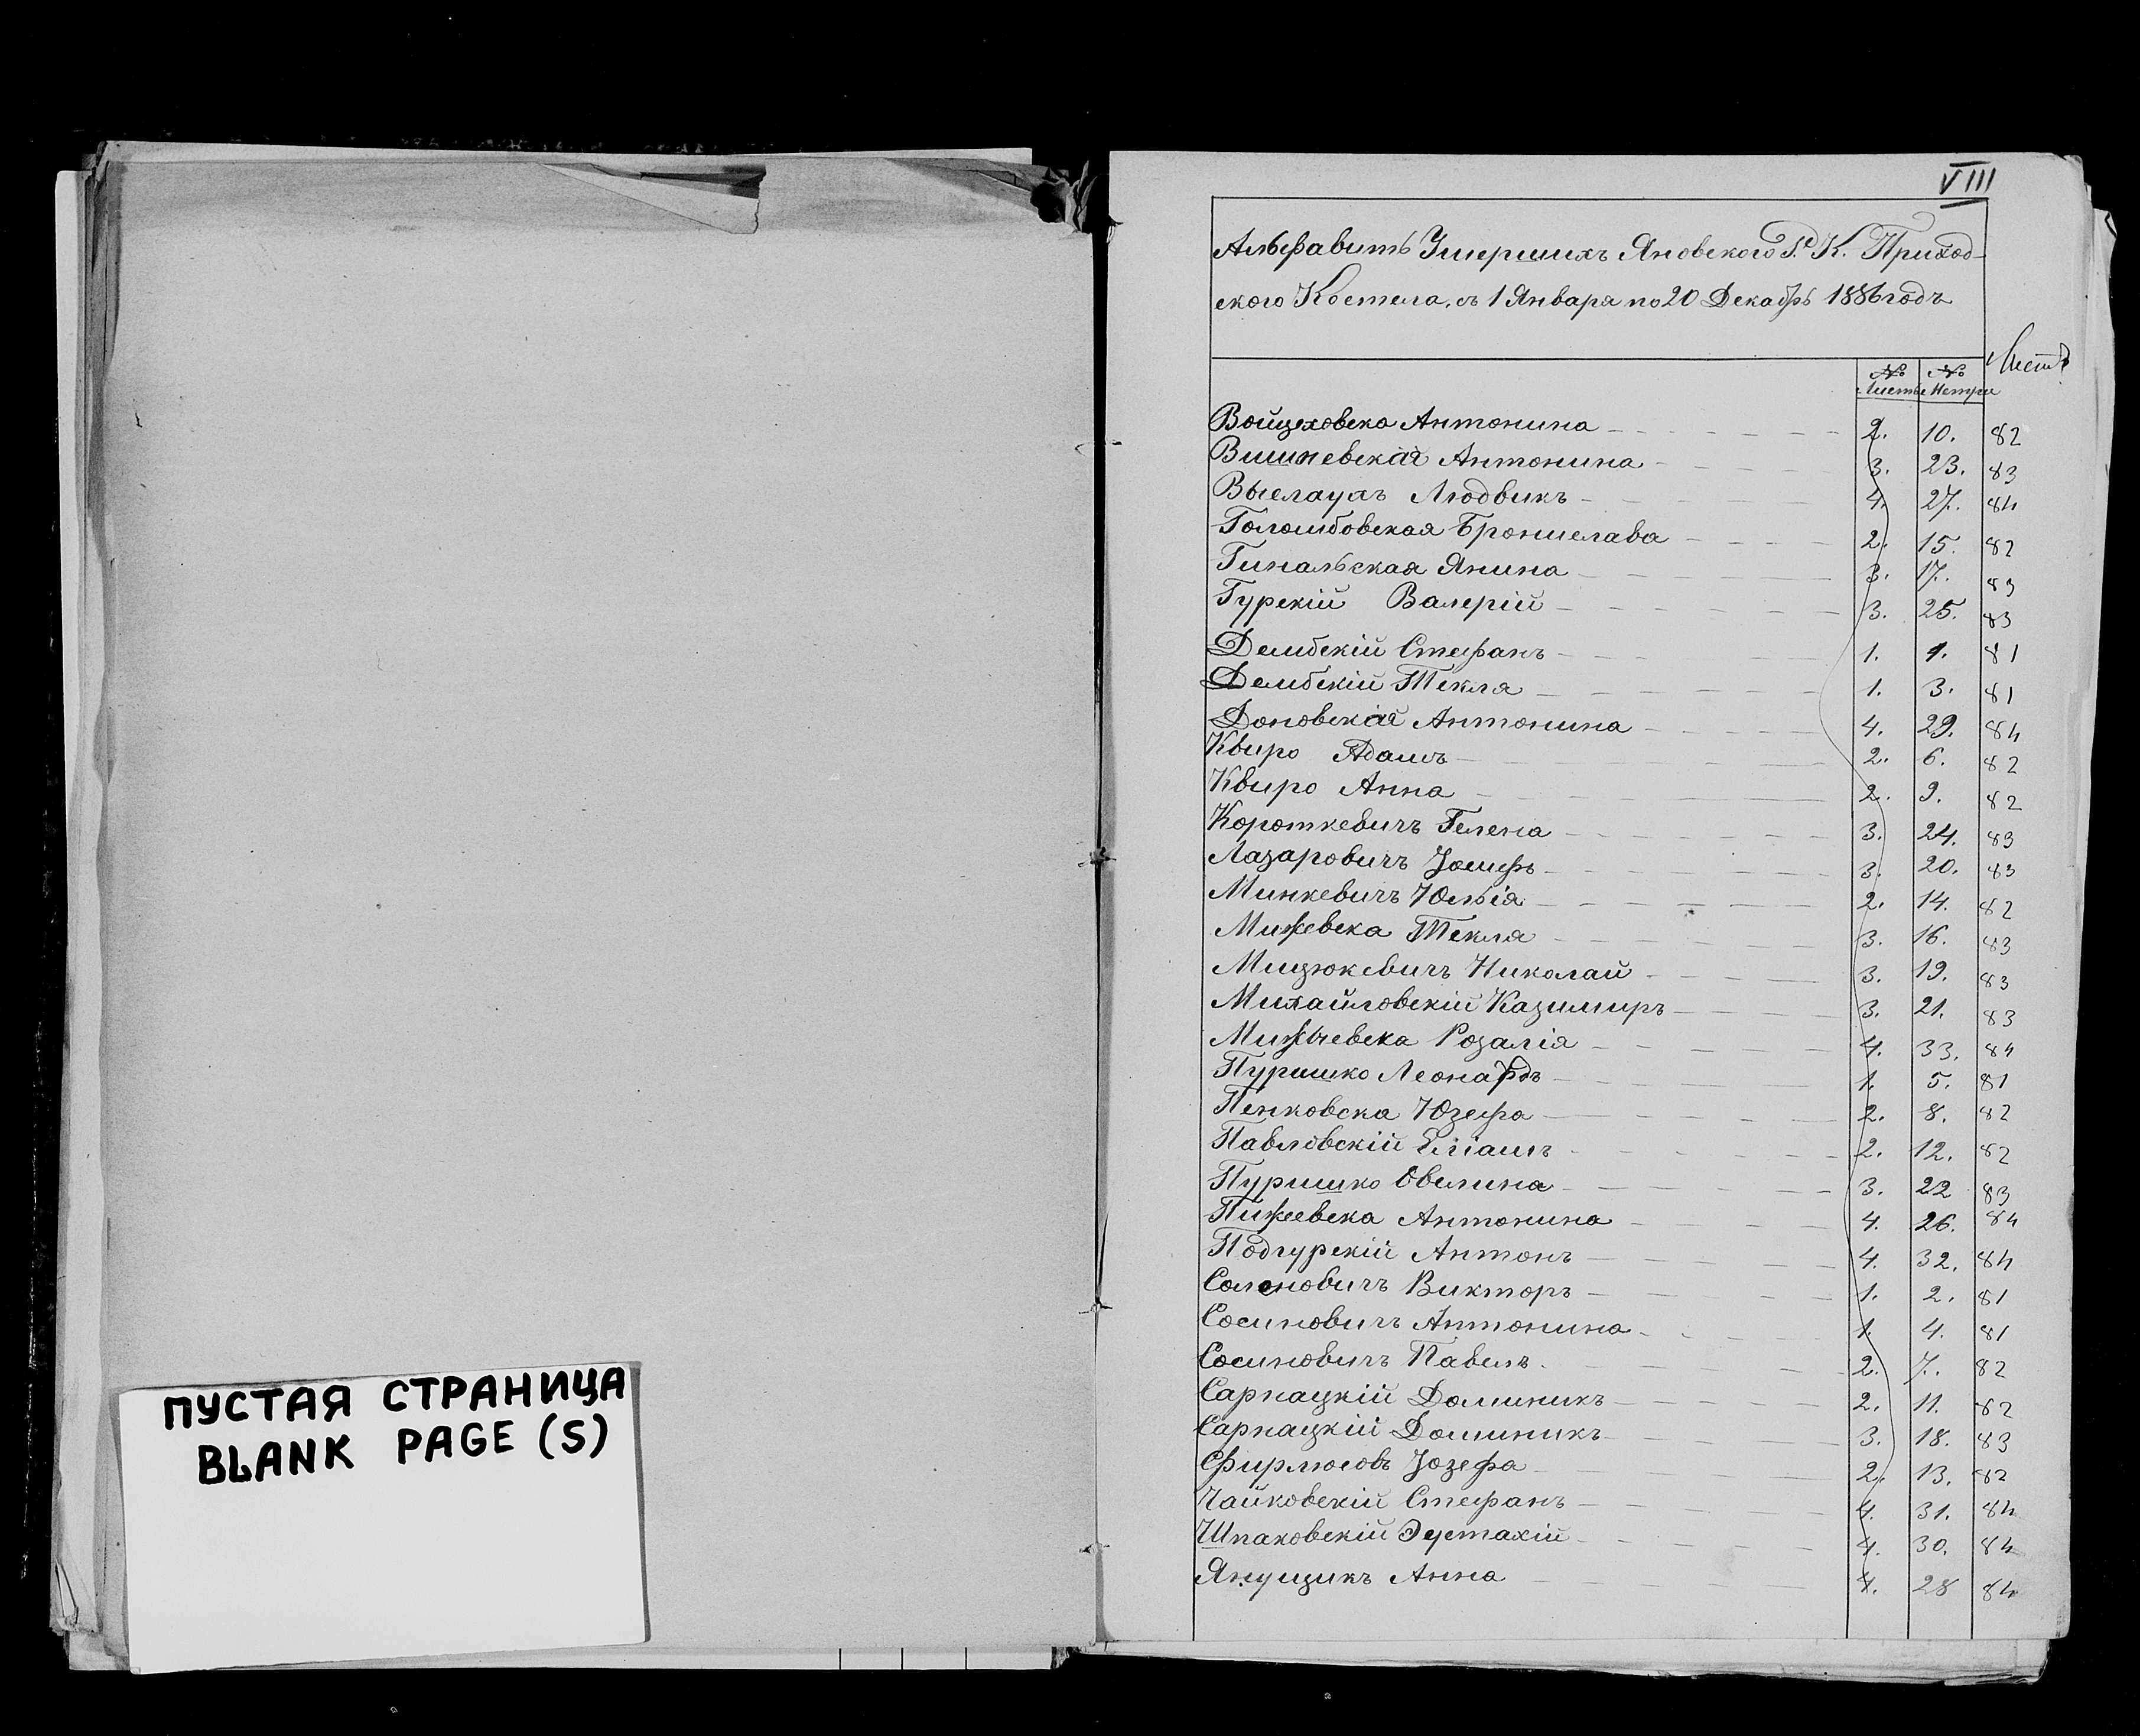 ПУСТАЯ СТРАНИЦА
BLANK PAGE (S)
VIII
Альфавитъ Умершихъ Яновского Р. К. Приход-
ского Костела, съ 1 Января по 20 Декабрь 1886 годъ
№ Листа № Метри Листъ
Войцеховска Антонина 2. 10. 82
Вишневская Антонина 3. 23. 83
Выслаухъ Людвикъ 4. 27. 84
Голомбовская Бронислава 2. 15. 82
Гинальская Янина 3. 17. 83
Гурскій Валерій 3. 25. 83
Дембскій Стефанъ 1. 1. 81
Дембскій Текля 1. 3. 81
Доновская Антонина 4. 29. 84
Квиро Адамъ 2. 6. 82
Квиро Анна 2. 9. 82
Короткевичъ Гелена 3. 24. 83
Лазаровичъ Іосифъ 3. 20. 83
Минкевичъ Юлія 2. 14. 82
Мижевска Текля 3. 16. 83
Мицюкевичъ Николай 3. 19. 83
Михайловскій Казимиръ 3. 21. 83
Розалія 4. 33. 84
Пуришко Леонардъ 1. 5. 81
Пенковска Юзефа 2. 8. 82
Павловскій Еліашъ 2. 12. 82
Пуришко Эвелина 3. 22 83
Антонина 4. 26. 84
Подгурскій Антонъ 4. 32. 84
Солоновичъ Викторъ 1. 2. 81
Сосиновичъ Антонина 1. 4. 81
Сосиновичъ Павелъ 2. 7. 82
Сарнацкій Доминикъ 2. 11. 82
Сарнацкій Доминикъ 3. 18. 83
Іозефа 2. 13. 82
Чайковскій Стефанъ 4. 31. 84
Шпаковскій Эустахій 4. 30. 84
Янущикъ Анна 4. 28 84